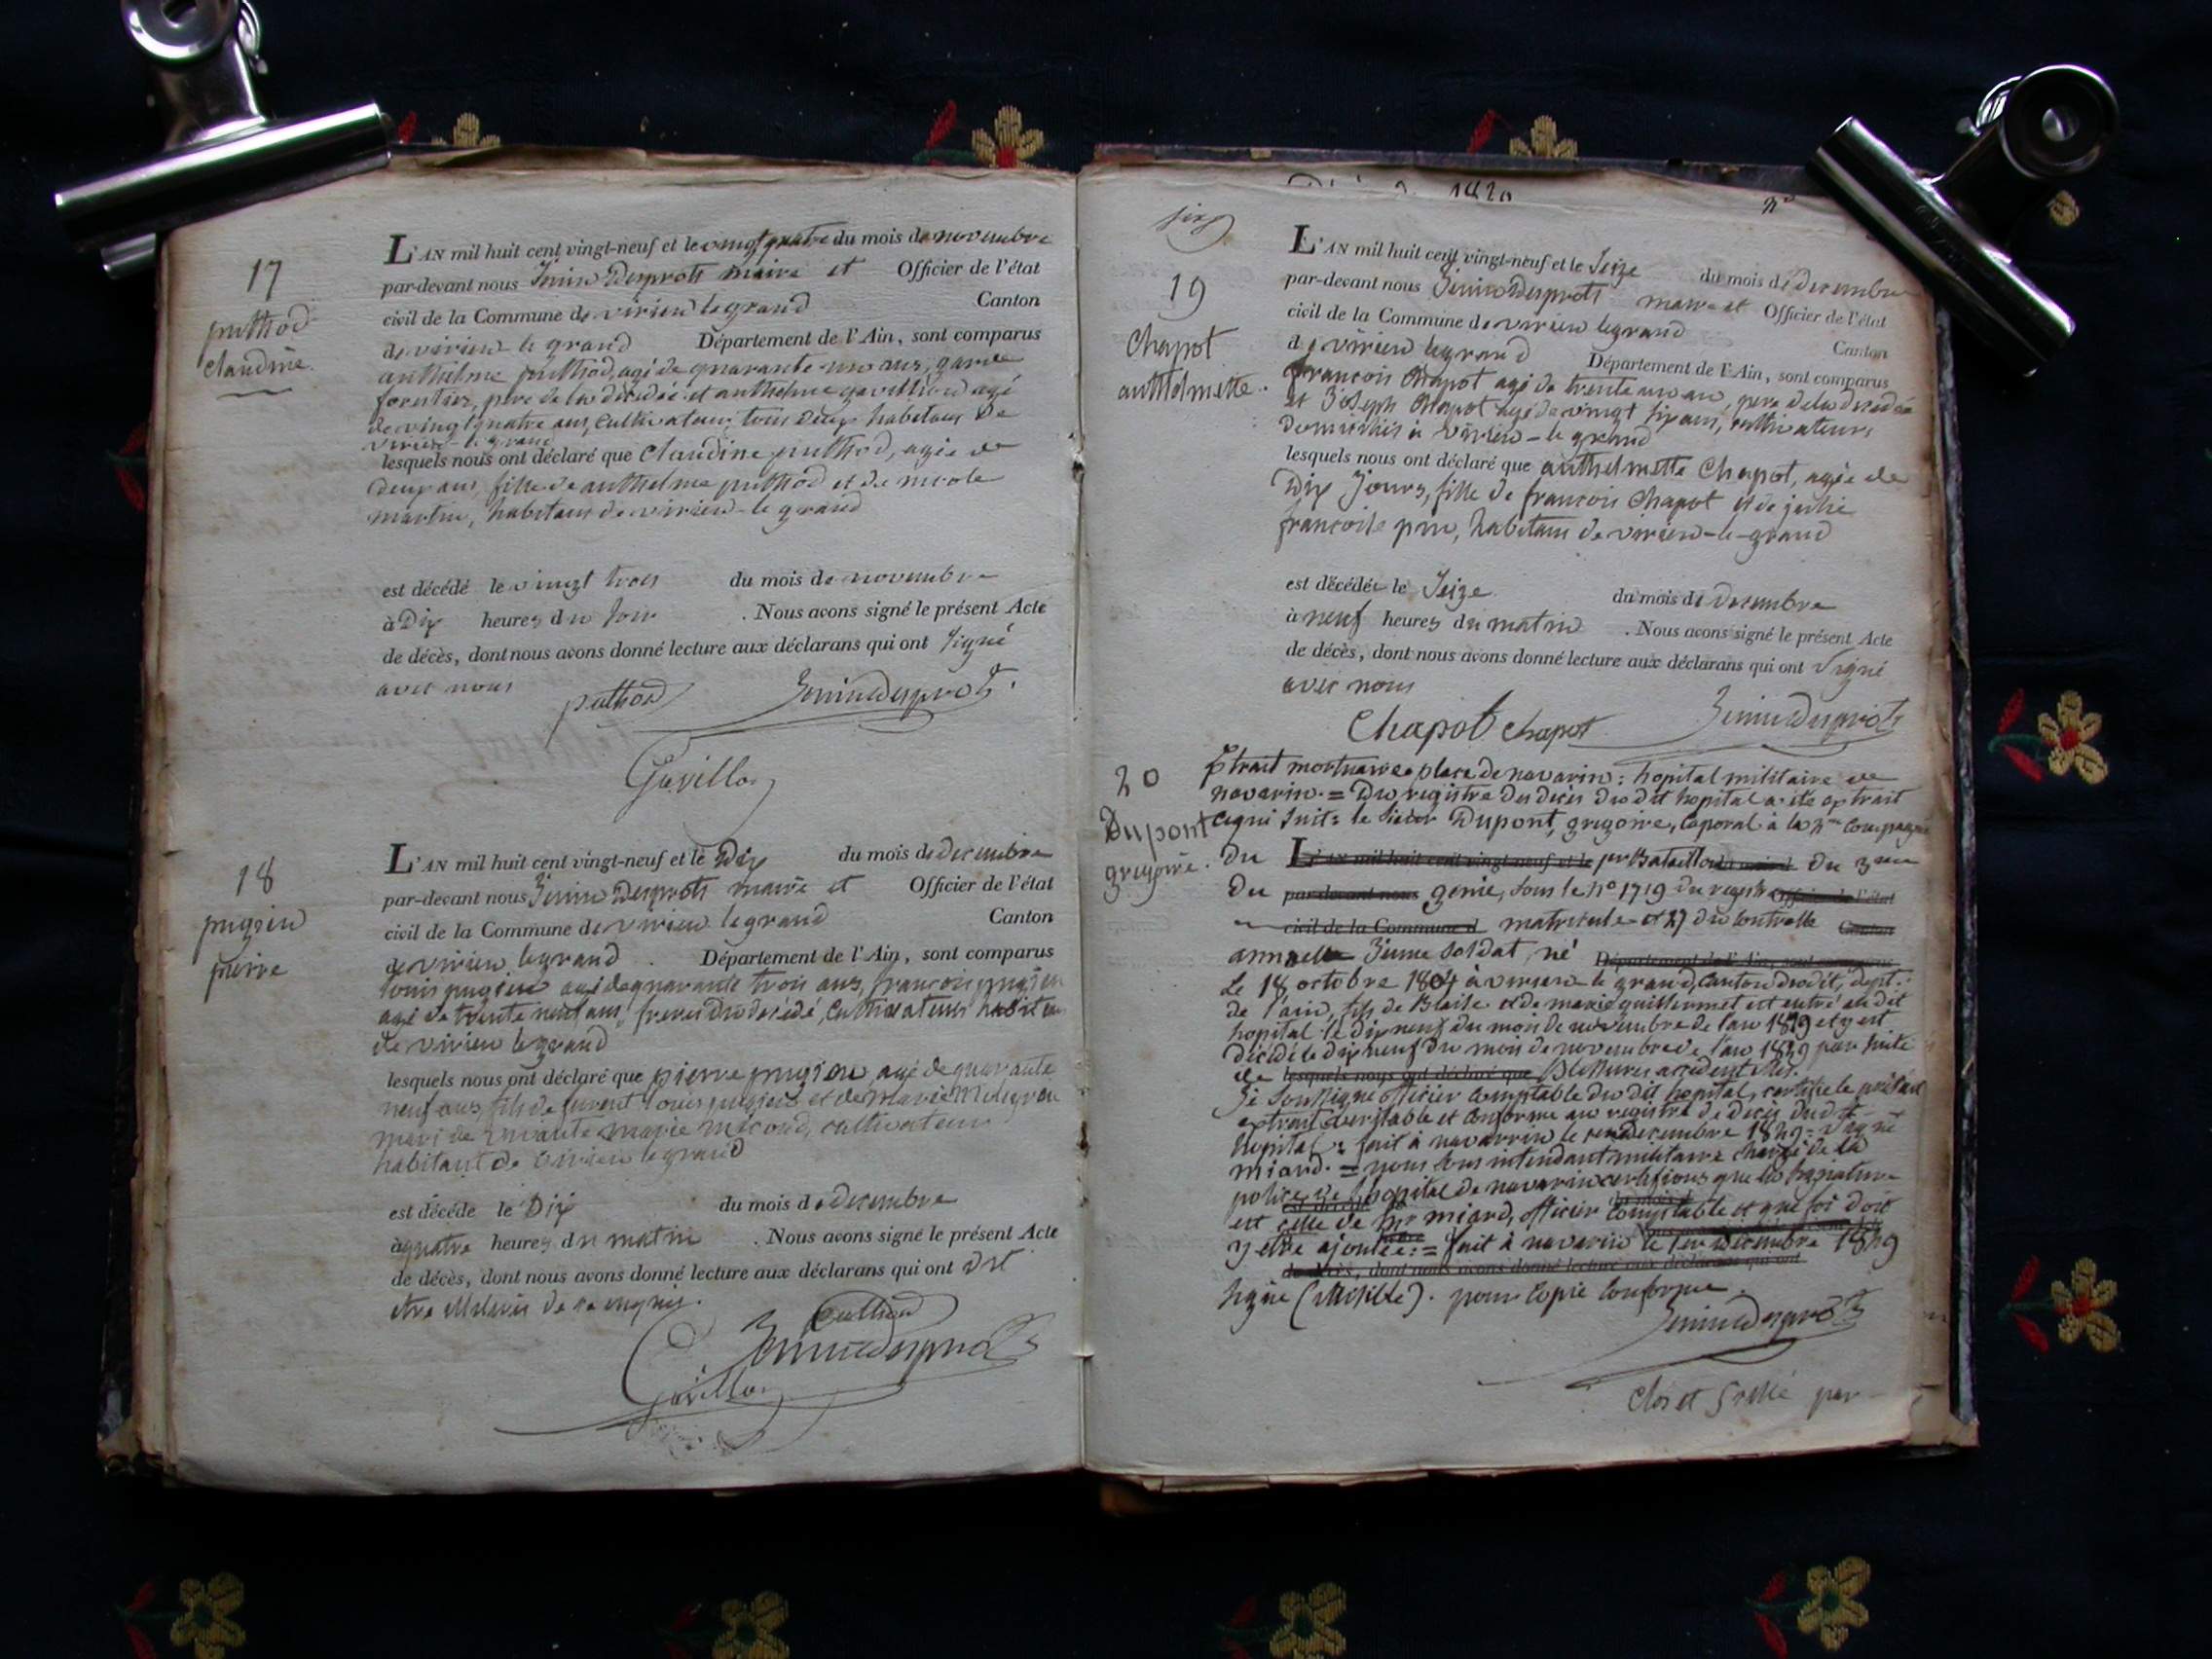 17
puthod
claudine
L'AN mil huit cent vingt-neuf et le vingt quatre du mois de novembre
par-devant nous Jenin Desprots maire et Officier de l'état
civil de la Commune de virieu le grand Canton
de virieu le grand Département de l'Ain, sont comparus
anthelme puthod, agé de quarante un ans, garde
forestier, pere de la décédée et anthelme gavillon agé
de vingt quatre ans, cultivateur tous deux habitans de
virieu le grand
lesquels nous ont déclaré que claudine puthod, agée de
deux ans, fille de anthelme puthod et de nicole
martin, habitans de virieu-le grand
est décédé le vingt trois du mois de novembre
à Dix heures du soir . Nous avons signé le présent Acte
de décès, dont nous avons donné lecture aux déclarans qui ont signé
avec nous
puthod Jenin desprots
Gavillon
18
pugieu
pierre
L'AN mil huit cent vingt-neuf et le Dix du mois de decembre
par-devant nous Jenin Desprots maire et Officier de l'état
civil de la Commune de virieu le grand Canton
de virieu le grand . Département de l'Ain, sont comparus
louis pugieu agé de quarante trois ans, francois pugieu
agé de trente neuf ans, freres du décédé, cultivateurs habitans
de virieu le grand
lesquels nous ont déclaré que pierre pugieu, agé de quarante
neuf ans, fils de furent louis pugieu et de marie
mari de vivante marie , cultivateur
habitant de virieu le grand
est décédé le Dix du mois de decembre
à quatre heures du matin . Nous avons signé le présent Acte
de décès, dont nous avons donné lecture aux déclarans qui ont dit
etre de ce enquis.
puthod
Jenin desprots
Gavillon
1829
19
chapot
anthelmette.
L'AN mil huit cent vingt-neuf et le Seize du mois de decembre
par-devant nous Jenin Desprots maire et Officier de l'état
civil de la Commune de virieu le grand Canton
de virieu le grand Département de l'Ain, sont comparus
francois chapot agé de trente un an, pere de la décédée
et Joseph chapot agé de vingt six ans, cultivateurs
domiciliés à virieu-le grand
lesquels nous ont déclaré que anthelmette Chapot, agée de
Dix Jours, fille de francois Chapot et de julie
francoise prin, habitans de virieu-le-grand
est décédée le Seize du mois de decembre
à neuf heures du matin . Nous avons signé le présent Acte
de décès, dont nous avons donné lecture aux déclarans qui ont signé
avec nous
Chapot chapot Jenin desprots
20
Dupont
gregoire.
Extrait mortuaire place de navarin: hopital militaire de
navarin. = Du registre des décès du dit hopital a été extrait
ce qui suit: le sieur Dupont, gregoire, Caporal à la 4me Compagnie
du L'AN mil huit cent vingt-neuf et le 1er Bataillon du mois d du 3me
Du par-devant nous genie, sous le no 1719 du registre Officier de l'état
civil de la Commune d matricule et 27 du Contrôle Canton
annuelle Jeune soldat, né Département de l'Ain, sont comparus
le 18 octobre 1804 à virieu le grand, Canton du dit, dept.
de l'ain, fils de Blaise et de marie guillermet est entré au dit
hopital le dix neuf du mois de novembre de l'an 1829 et y est
décédé le dix neuf du mois de novembre de l'an 1829 par suite
de lesquels nous ont déclaré que Blessures accidentelles.
Je soussigné officier Comptable du dit hopital, certifie le présent
extrait veritable et conforme au registre de décès du dit
hopital = fait à navarin le 1er decembre 1829 = signé
miard. = nous sous intendant militaire chargé de la
police de l'hopital de navarin certifions que la signature
est celle de Mr miard, officier Comptable et que foi doit
y etre ajoutée: = fait à navarin le 1er decembre 1829
de décès, dont nous avons donné lecture aux déclarans qui ont
signé (illisible). pour copie conforme.
Jenin desprots
Clos et par